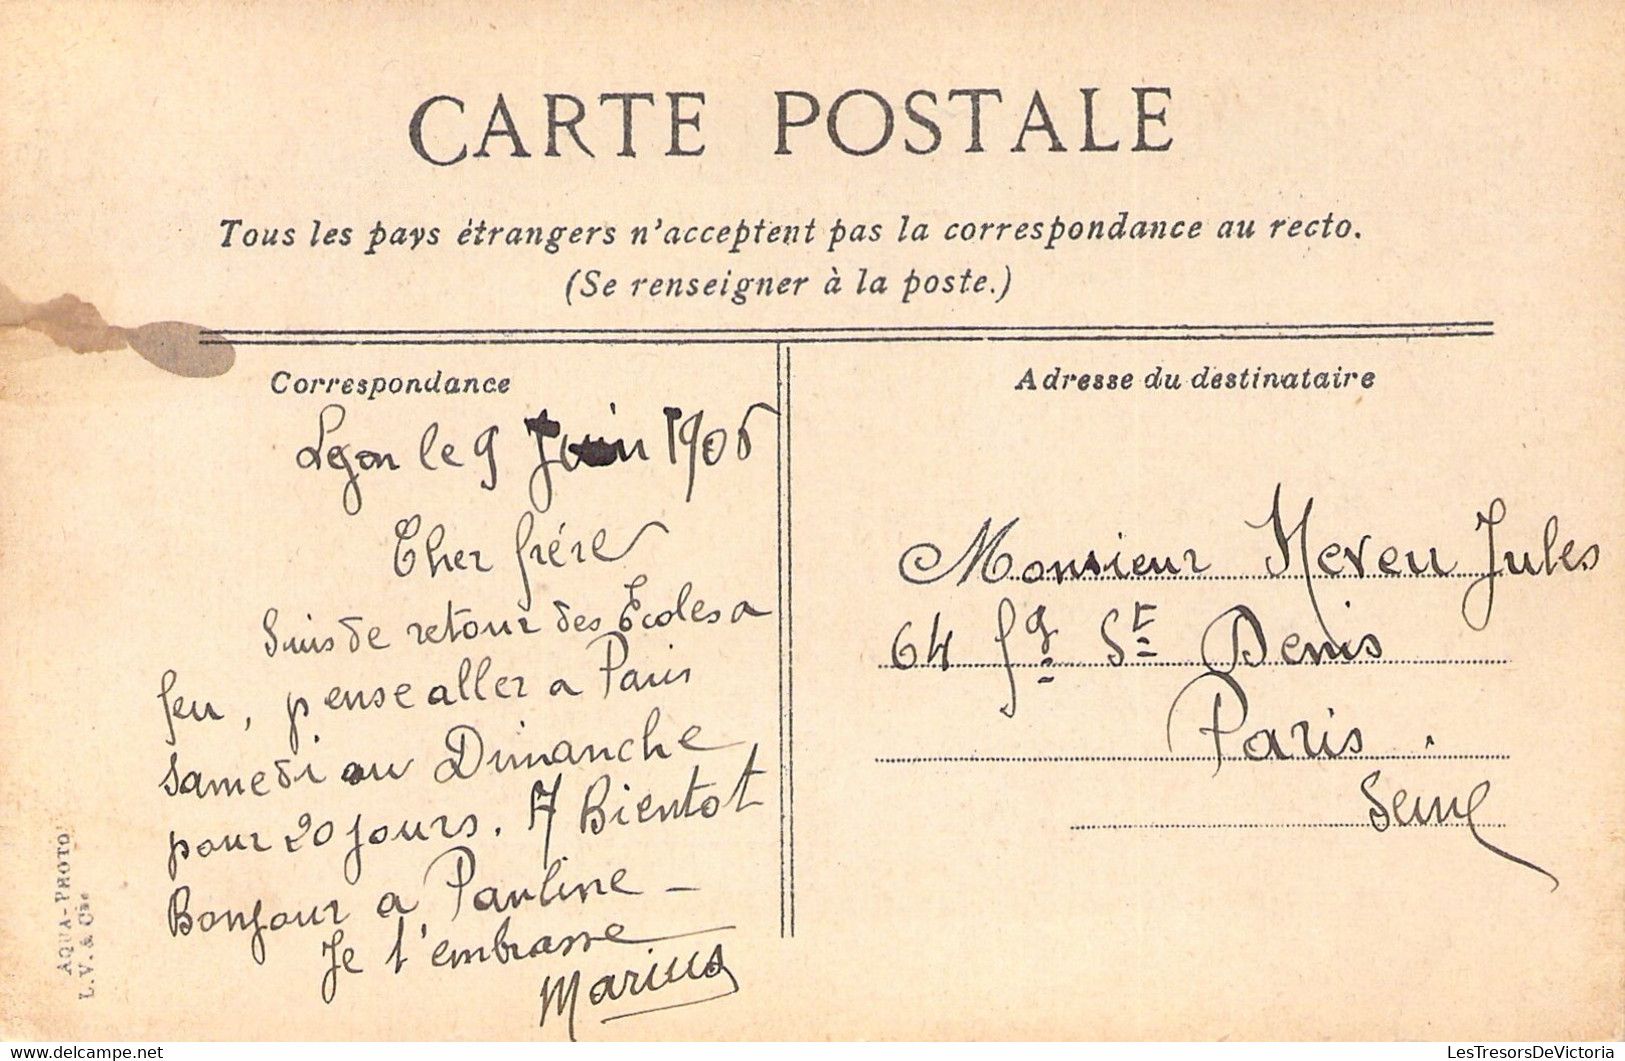 CARTE POSTALE
Tous les pays étrangers n'acceptent pas la correspondance au recto.
(Se renseigner à la poste.)
Correspondance
Lyon le 9 Juin 1906
Cher frére
Suis de retour des Écoles a
feu, pense aller a Paris
samedi ou Dimanche
pour 20 jours. A Bientot
Bonjour a Pauline –
Je t'embrasse
Marius
Adresse du destinataire
Monsieur Neveu Jules
64 fg St Denis
Paris.
Seine
AQUA-PHOTO
L.V. & Cie
LesTresorsDeVictoria